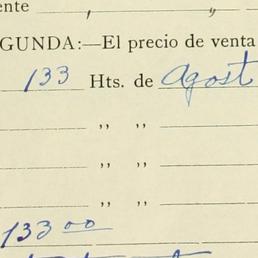 ente , „
GUNDA:—El precio de venta
133 Hts. de Agost
,, ,,
,, ,,
,, ,,
133 00